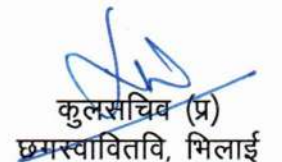 कुलसचिव (प्र)
छगस्वावितवि, भिलाई